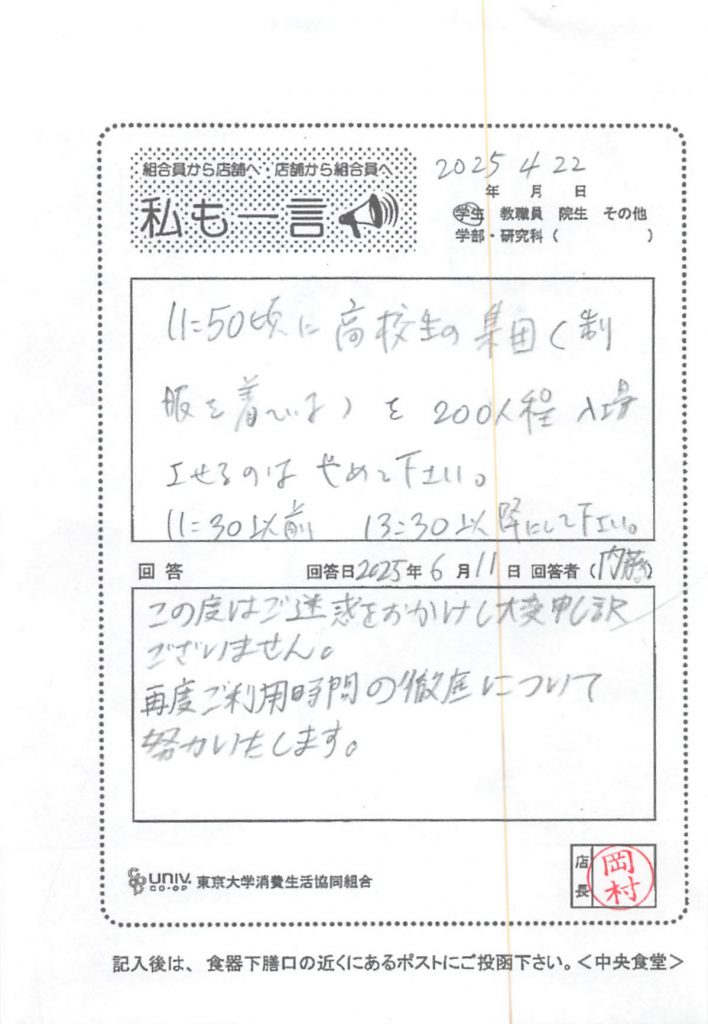 組合員から店舗へ・店舗から組合員へ
私も一言
2025 4 22
年 月 日
学生 教職員 院生 その他
学部・研究科( )
11:50頃に高校生の集団(制
服を着ている)を200人程 入場
させるのは やめて下さい。
11:30以前 13:30以降にして下さい。
回答 回答日2025年6月11日 回答者(内藤)
この度はご迷惑をおかけし大変申し訳
ございません。
再度ご利用時間の徹底について
努力いたします。
UNIV. CO-OP 東京大学消費生活協同組合
店長 岡村
記入後は、食器下膳口の近くにあるポストにご投函下さい。<中央食堂>